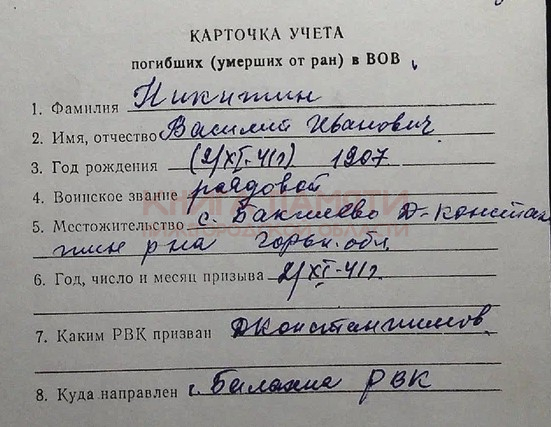 КАРТОЧКА УЧЕТА
погибших (умерших от ран) в ВОВ
1. Фамилия Никитин
2. Имя, отчество Василий Иванович
3. Год рождения (2/XI-41г) 1907
4. Воинское звание рядовой
КНИГА ПАМЯТИ
НИЖЕГОРОДСКОЙ ОБЛАСТИ
5. Местожительство с. Бакшеево Д-Констан
тин р на Горьк. обл.
6. Год, число и месяц призыва 2/XI-41г
7. Каким РВК призван ДКонстантинов
8. Куда направлен г. Балахна РВК